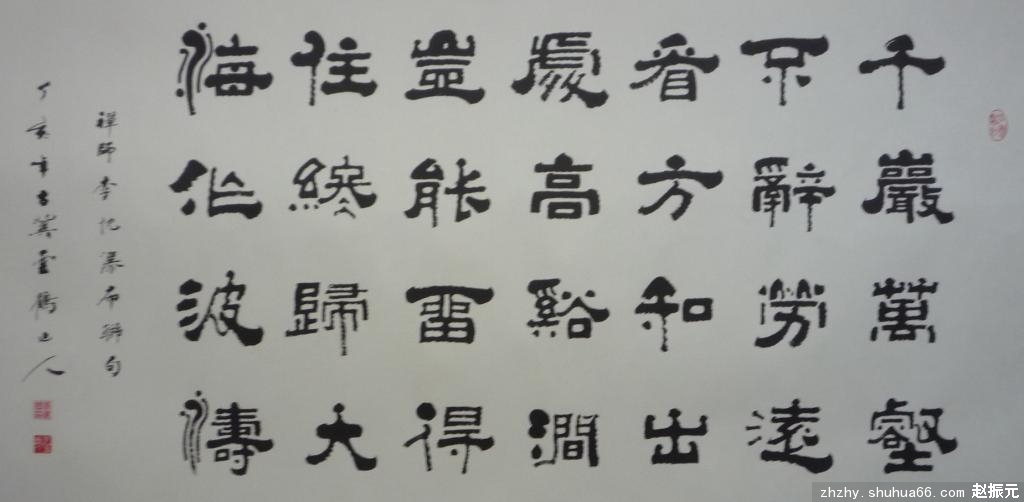 千巖萬壑
不辭勞遠
看方知出
處高谿澗
豈能留得
住終歸大
海作波濤
禪師李忱瀑布聯句
丁亥年古冀雲鶴山人
zhzhy.shuhua66.com 赵振元